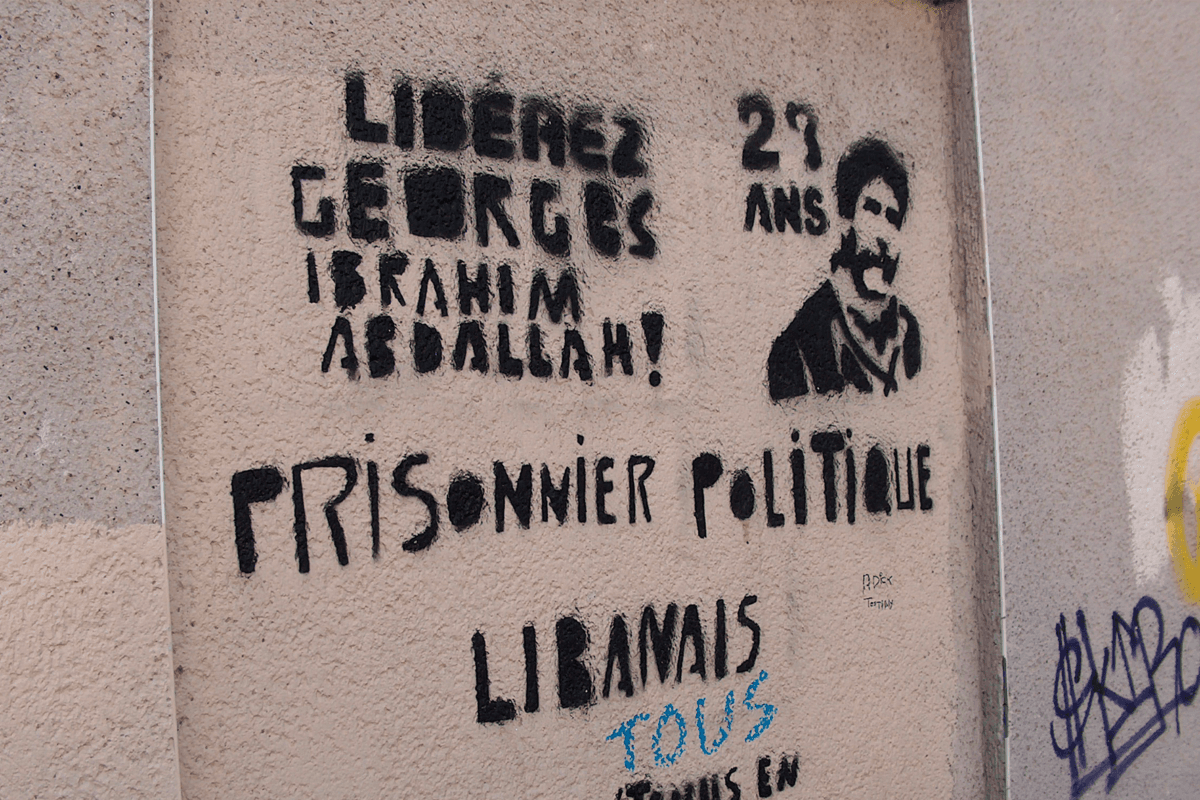 LIBÉREZ
GEORGES
IBRAHIM
ABDALLAH!
27
ANS
PRISONNIER POLITIQUE
LIBANAIS
TOUS
EN